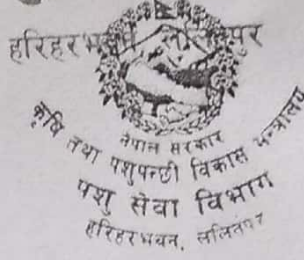 हरिहरभवन, ललितपुर
नेपाल सरकार
कृषि तथा पशुपन्छी विकास मन्त्रालय
पशु सेवा विभाग
हरिहरभवन, ललितपुर